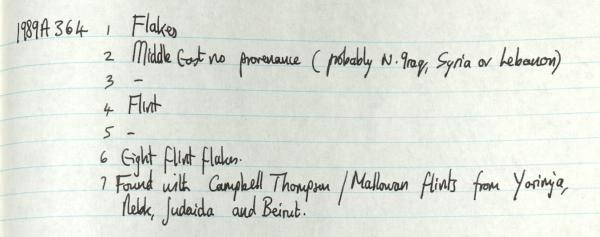 1989A364 1 Flakes
2 Middle East no provenance (probably N. Iraq, Syria or Lebanon)
3 -
4 Flint
5 -
6 Eight flint flakes.
7 Found with Campbell Thompson / Mallowan flints from Yarimja,
Nebk, Judaida and Beirut.